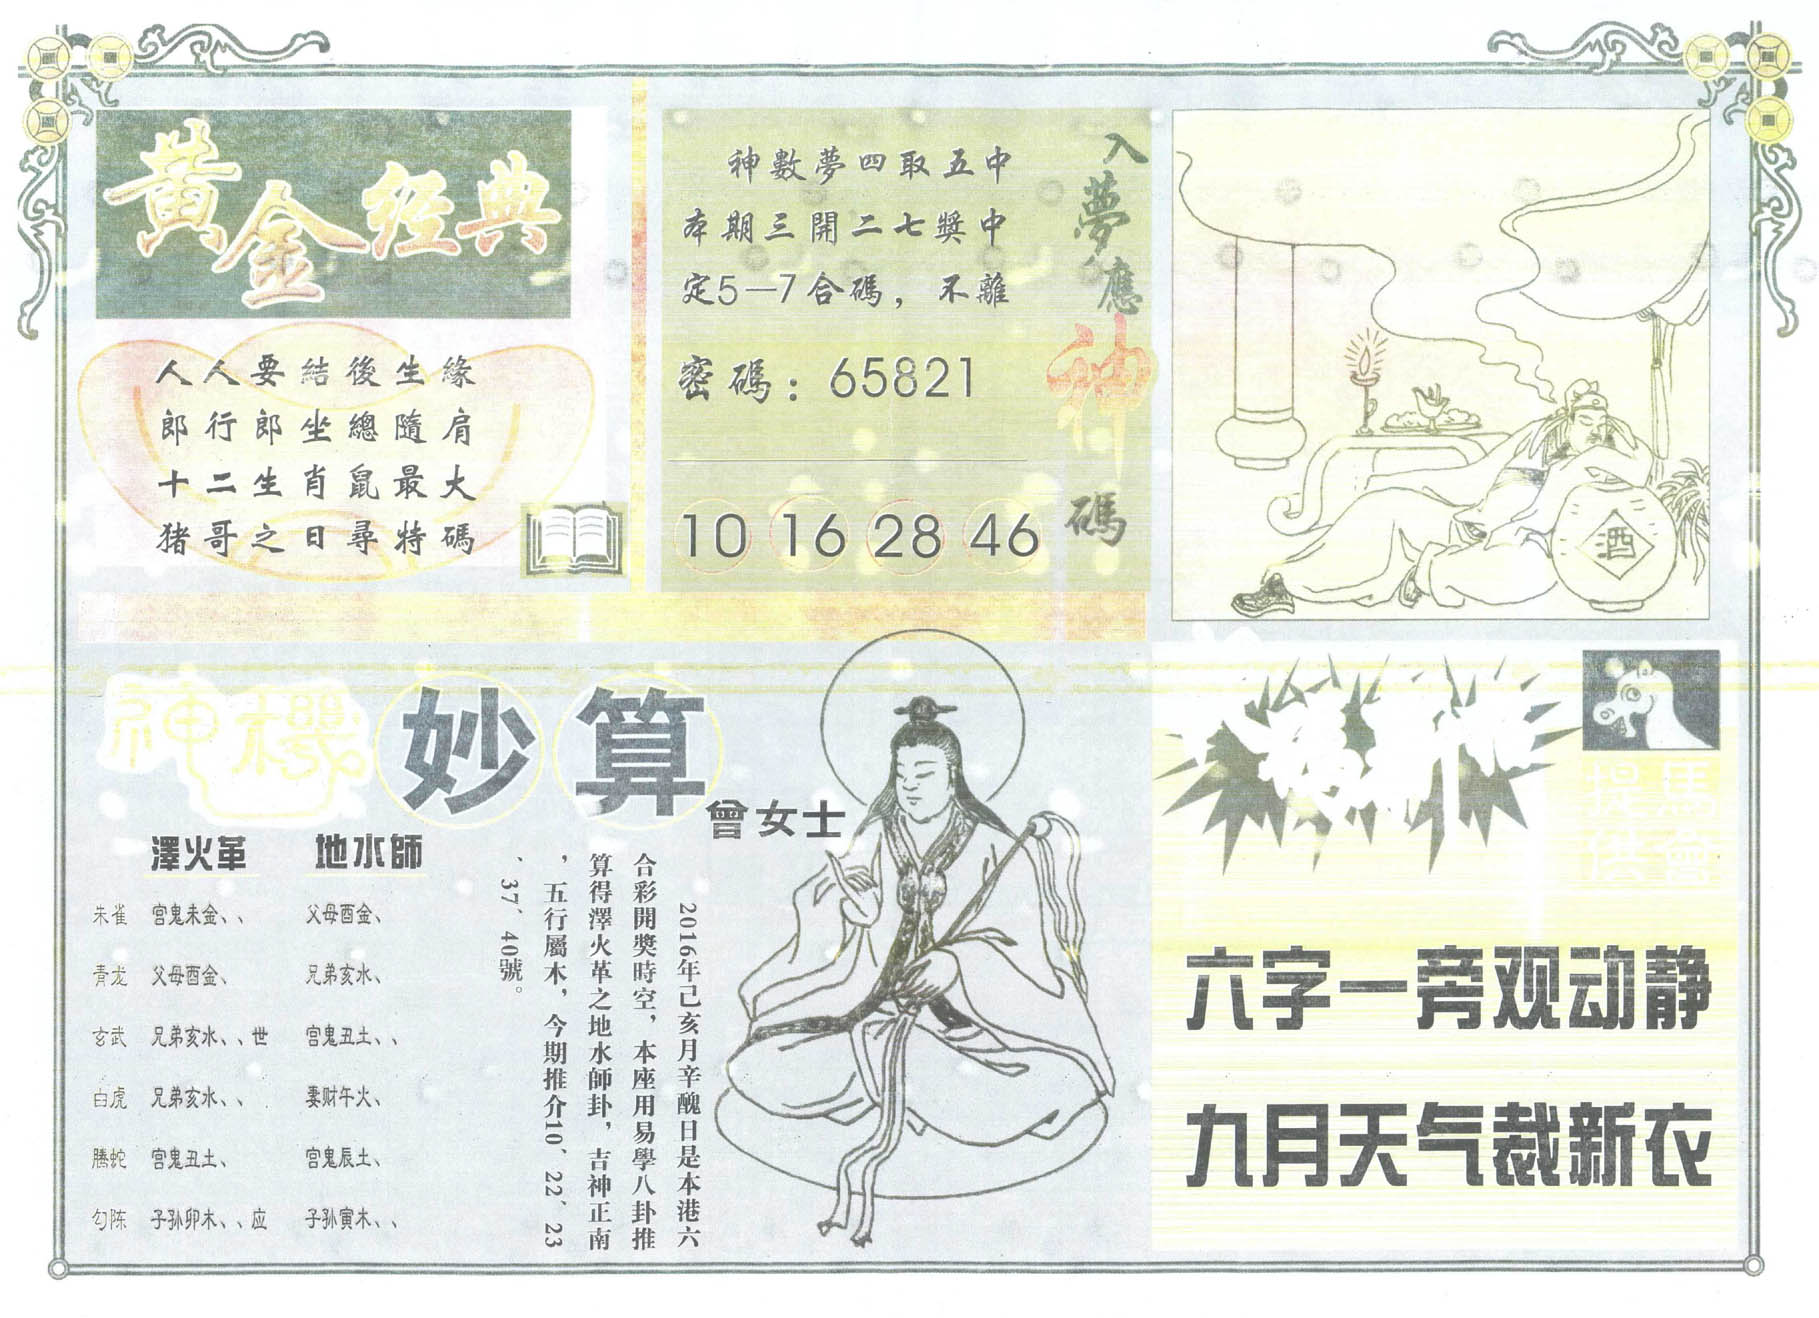 黃金经典
人人要結後生緣
郎行郎坐總隨肩
十二生肖鼠最大
猪哥之日尋特碼
神數夢四取五中
本期三開二七獎中
定5—7合碼，不離
密碼：65821
10 16 28 46
入夢應神碼
酒
神機妙算
曾女士
澤火革 地水師
朱雀 宫鬼未金、、 父母酉金、
青龙 父母酉金、 兄弟亥水、
玄武 兄弟亥水、、世 宫鬼丑土、、
白虎 兄弟亥水、、 妻财午火、
腾蛇 宫鬼丑土、 宫鬼辰土、
勾陈 子孙卯木、、应 子孙寅木、、
2016年己亥月辛醜日是本港六
合彩開獎時空，本座用易學八卦推
算得澤火革之地水師卦，吉神正南
，五行屬木，今期推介10、22、23
、37、40號。
馬會
提供
六字一旁观动静
九月天气裁新衣